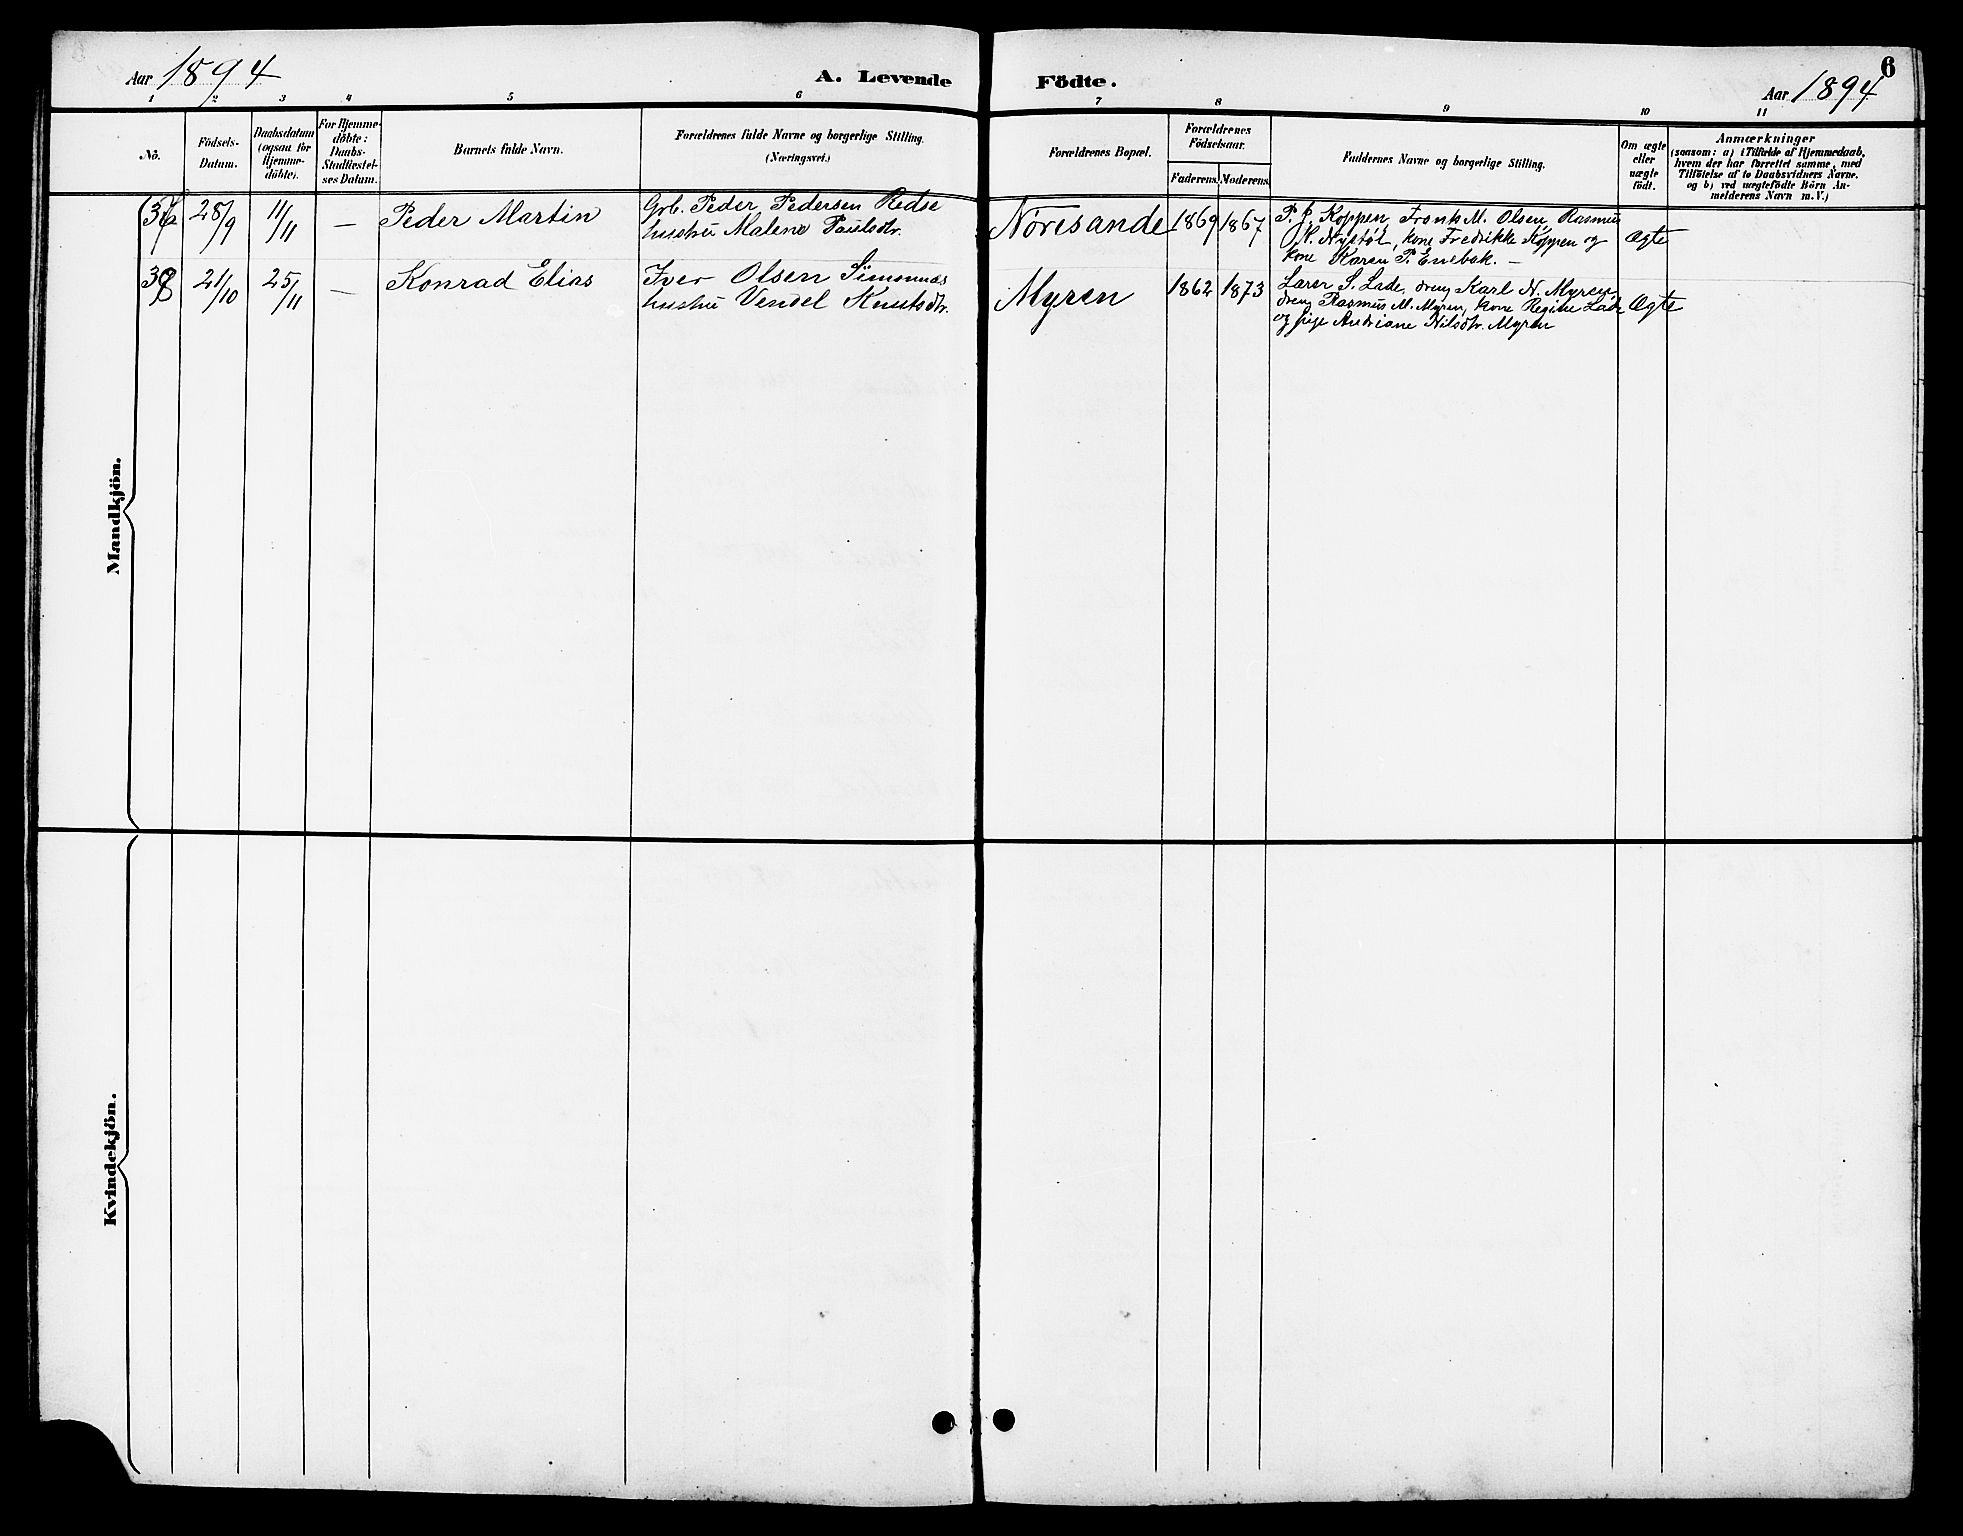 Aar 1894
A. Levende
Födte.
Aar 1894
6
1 2 3 4 5 6 7 8 9 10 11
No.
Födsels-
Datum.
Daabsdatum
(ogsaa for
Hjemme-
döbte).
For Hjemme-
döbte:
Daabs-
Stadfæstel-
ses Datum.
Barnets fulde Navn.
Forældrenes fulde Navne og borgerlige Stilling.
(Næringsvei.)
Forældrenes Bopæl.
Forældrenes
Födselsaar.
Faderens. Moderens.
Faddernes Navne og borgerlige Stilling.
Om ægte
eller
uægte
födt.
Anmærkninger
(saasom: a) i Tilfælde af Hjemmedaab,
hvem der har forrettet samme, med
Tilföielse af to Daabsvidners Navne.
og b) ved uægtefödte Börn An-
melderens Navn m. V.)
Mandkjön.
28/9 11/11 — Peder Martin
Grb. Peder Pedersen Redse
hustru Malene Paulsdtr.
Nøresande 1869 1867
P. J. Koppen, Frants M. Olsen, Rasmus
K. Nystøl, kone Fredrikke Koppen og
kone Karen P. Enebak. —
Ægte
38 21/10 25/11 — Konrad Elias
Iver Olsen Simonnæs
hustru Vendel Knutsdtr.
Myren 1862 1873
Larer S. Lade, dreng Karl N. Myren,
dreng Rasmus M. Myren, kone Regine Lade
og pige Andriane Nilsdtr. Myren
Ægte
Kvindekjön.